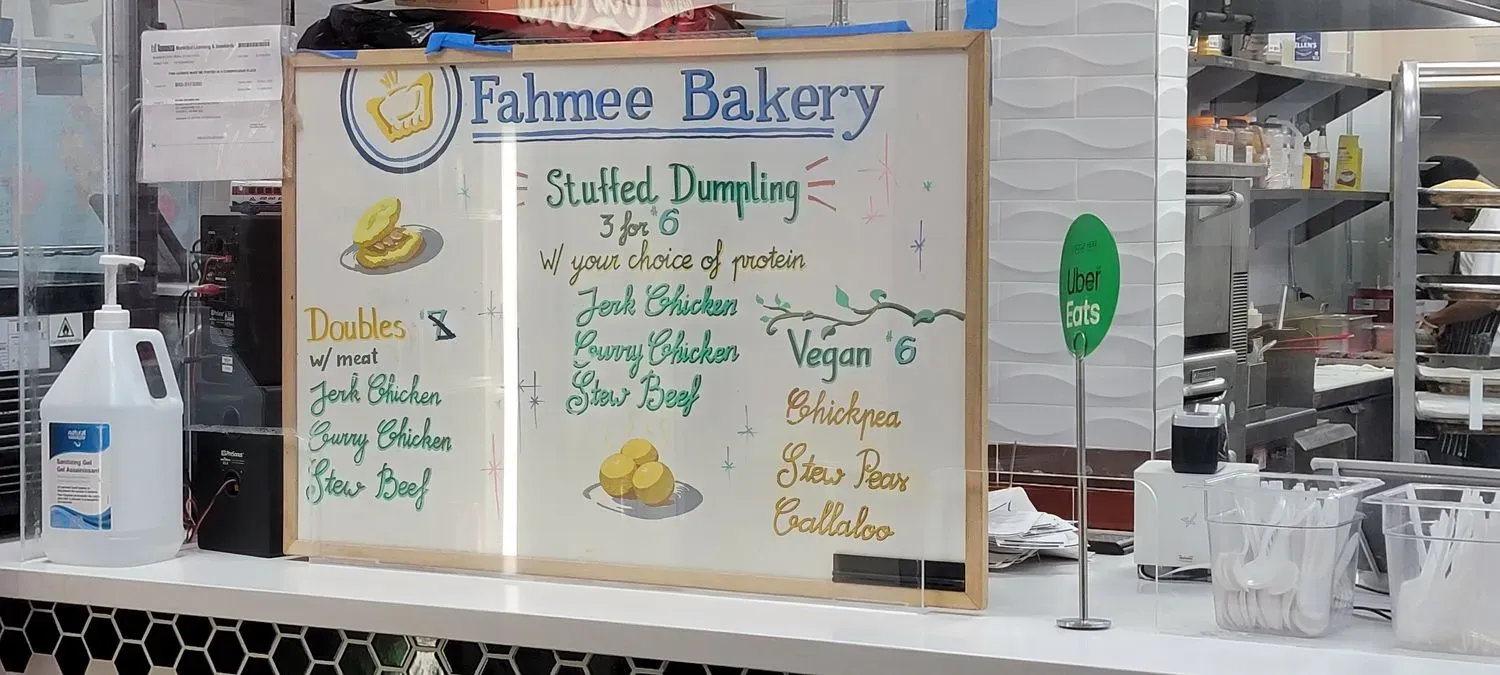 Fahmee Bakery
Stuffed Dumpling
3 for $6
w/ your choice of protein
Jerk Chicken
Curry Chicken
Stew Beef
Doubles
w/ meat
Jerk Chicken
Curry Chicken
Stew Beef
Vegan $6
Chickpea
Stew Peas
Callaloo
Uber
Eats
Sanitizing Gel
Gel Assainissant
Municipal Licensing & Standards